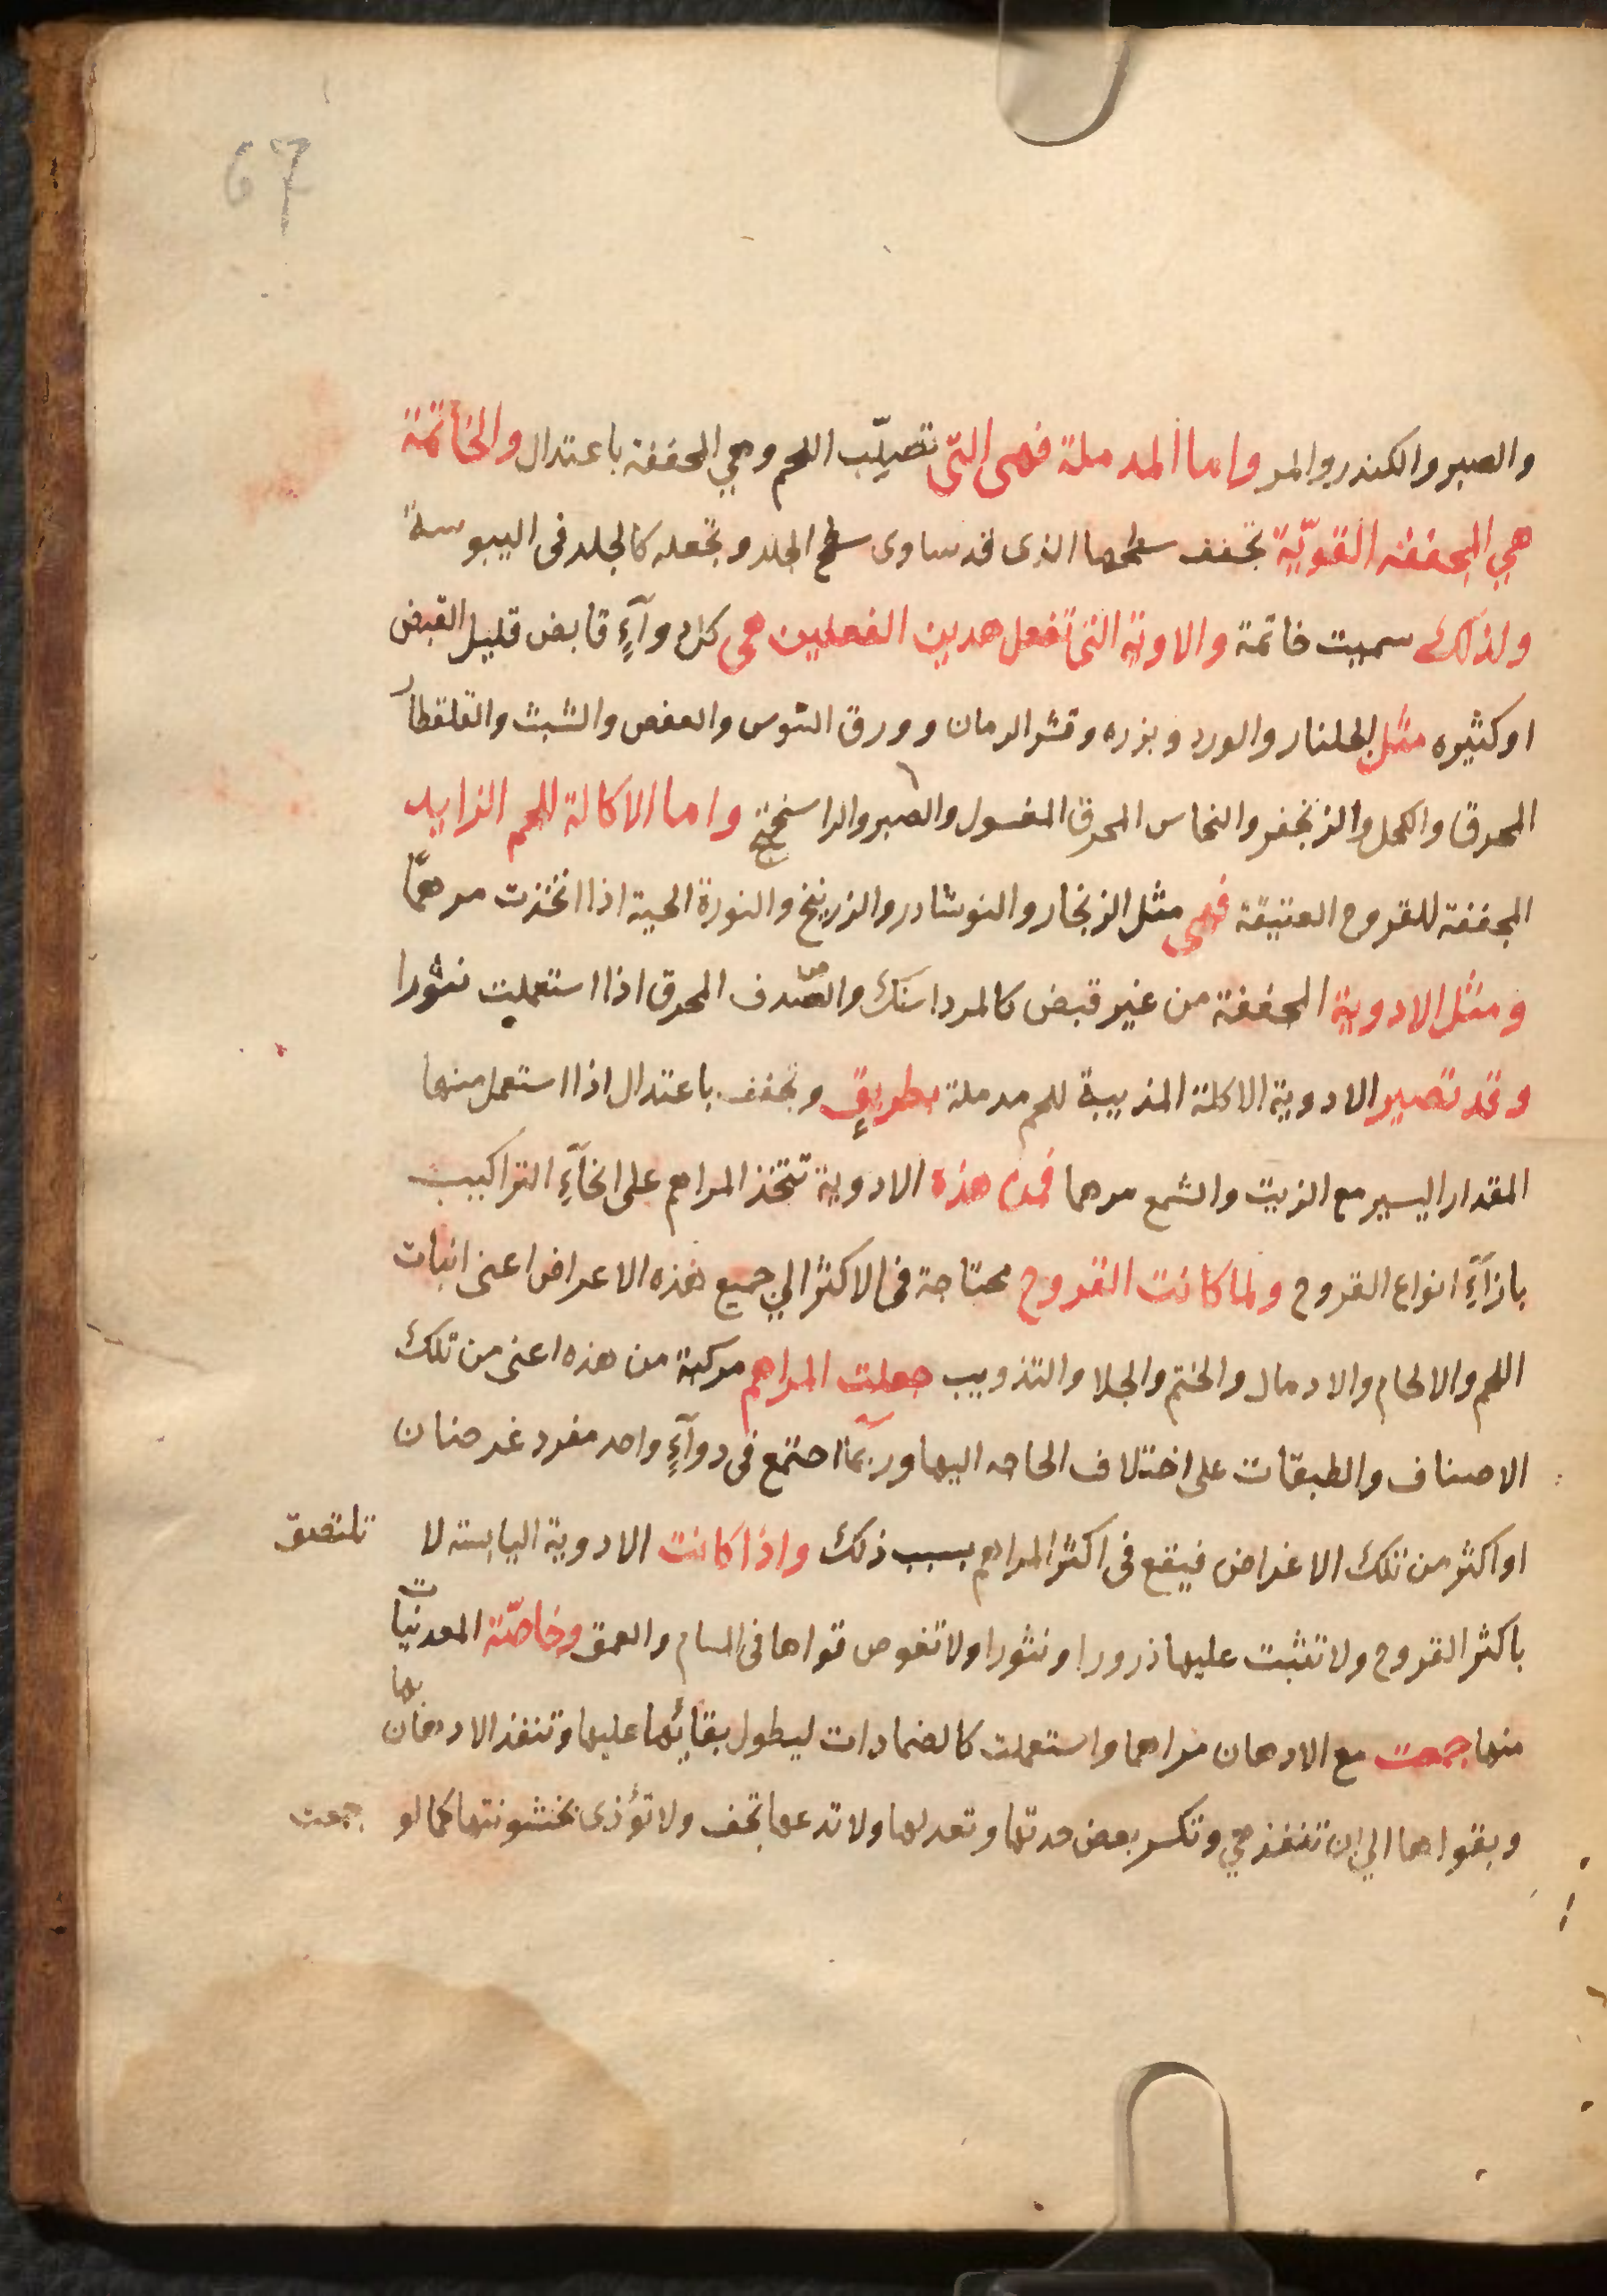 67
والصبر والكندر والمر واما المدملة فهى التى تصلّب اللحم وهي المجففة باعتدال والخاتمة
هي المجففه القويّة تجفف سطحها الذى قد ساوى سطح الجلد وتجعله كالجلد فى اليبوسة
ولذلك سميت خاتمة والاوية التى تفعل هدين الفعلين هى كل دوآءٍ قابض قليل القبض
او كثيره مثل الجلنار والورد وبزره وقشر الرمان وورق السوس والعفص والشبث والقلقطار
المحرق والكحل والزنجفر والنحاس المحرق المغسول والصبر والراسختج واما الاكالة للحم الزايد
المجففة للقروح العتيقة فهى مثل الزنجار والنوشادر والزرنيخ والنورة الحية اذا اتخذت مرهمًا
ومثل الادوية المجففة من غير قبض كالمرداسنك والصدف المحرق اذا استعملت نثورا
وقد تصير الادوية الاكلة المذيبة للحم مدملة بطريقٍ وتجفف باعتدال اذا استعمل منها
المقدار اليسير مع الزيت والشمع مرهما فمن هذه الادوية تتخذ المراهم على انحآءِ التراكيب
بازآءِ انواع القروح ولما كانت القروح محتاجة فى الاكثر الي جميع هذه الاعراض اعنى انبات
اللحم والالحام والادمال والختم والجلا والتذويب جعلت المراهم مركبة من هذه اعنى من تلك
الاصناف والطبقات على اختلاف الحاجه اليها وربمّا اجتمع فى دوآءٍ واحد مفرد غرضان
او اكثر من تلك الاغراض فيقع فى اكثر المراهم بسبب ذلك واذا كانت الادوية اليابسة لا تلتصق
باكثر القروح ولا تثبت عليها ذرورا ونثورا ولا تغوص قواها فى المسام والعمق وخاصّة المعدنيات
منها جمعت مع الادهان مراهما واستعملت كالضمادات ليطول بقائها عليها وتنفذ الادهان بها
وبقواها الي ان تنفذ هي وتكسر بعض حدتها وتعدلها ولا تدعها تجف ولا تؤذى بخشونتها كما لو جمعت